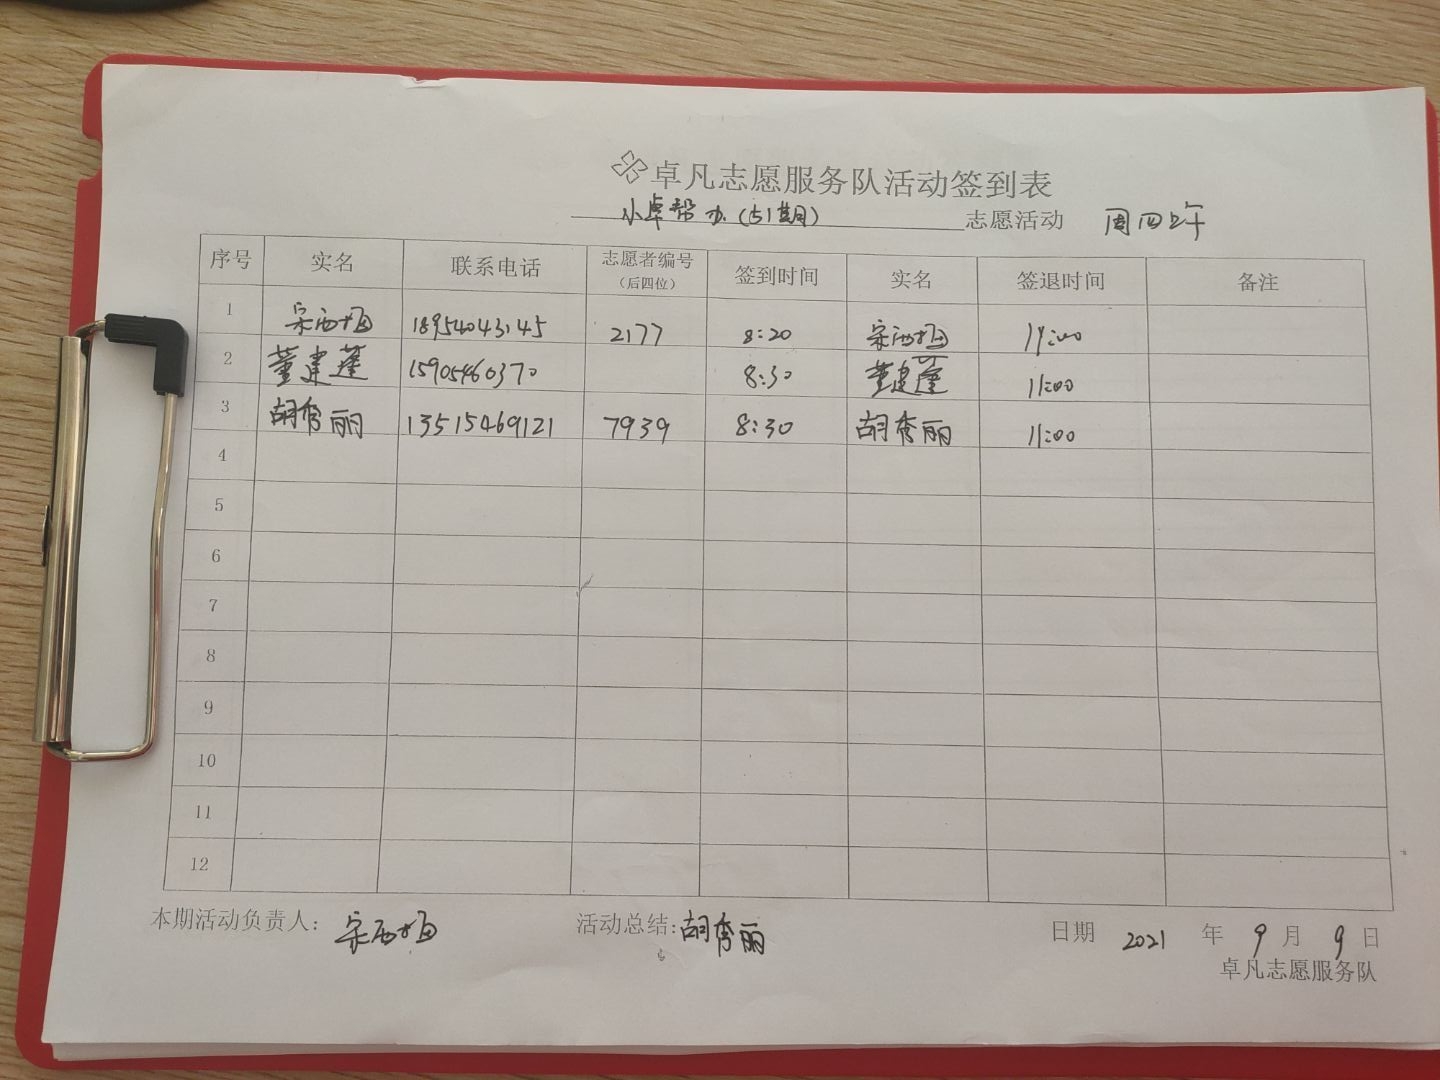 卓凡志愿服务队活动签到表
小卓帮办(51期) 志愿活动 周四上午
序号 实名 联系电话 志愿者编号(后四位) 签到时间 实名 签退时间 备注
1 18954043145 2177 8:20 11:00
2 董建蓬 15905460370 8:30 董建蓬 11:00
3 胡秀丽 13515469121 7939 8:30 胡秀丽 11:00
4
5
6
7
8
9
10
11
12
本期活动负责人: 活动总结:胡秀丽 日期 2021 年 9 月 9 日
卓凡志愿服务队